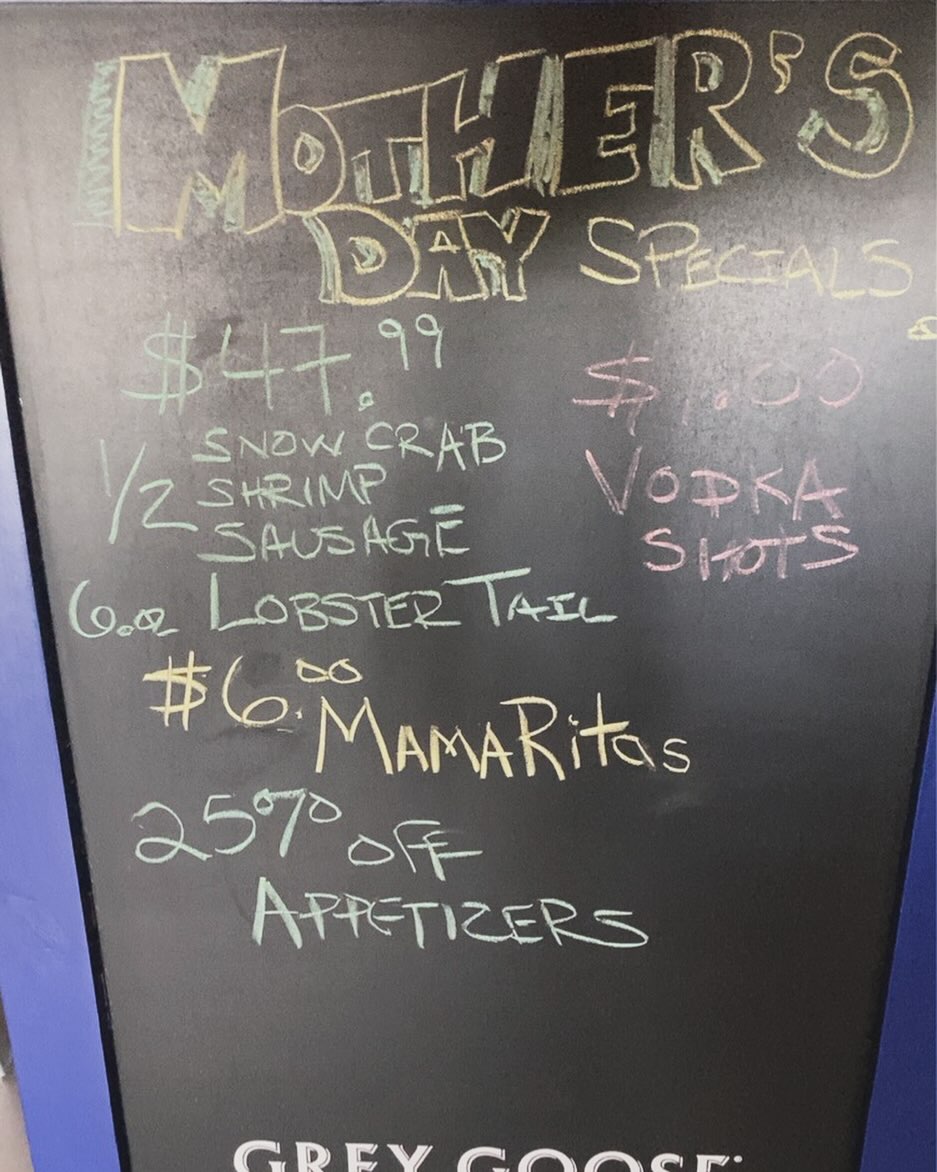 MOTHER'S
DAY SPECIALS
$47.99
1/2 SNOW CRAB
SHRIMP
SAUSAGE
6.oz LOBSTER TAIL
$1.00
VODKA
SHOTS
$6.00
MAMARitas
25% OFF
APPETIZERS
GREY GOOSE